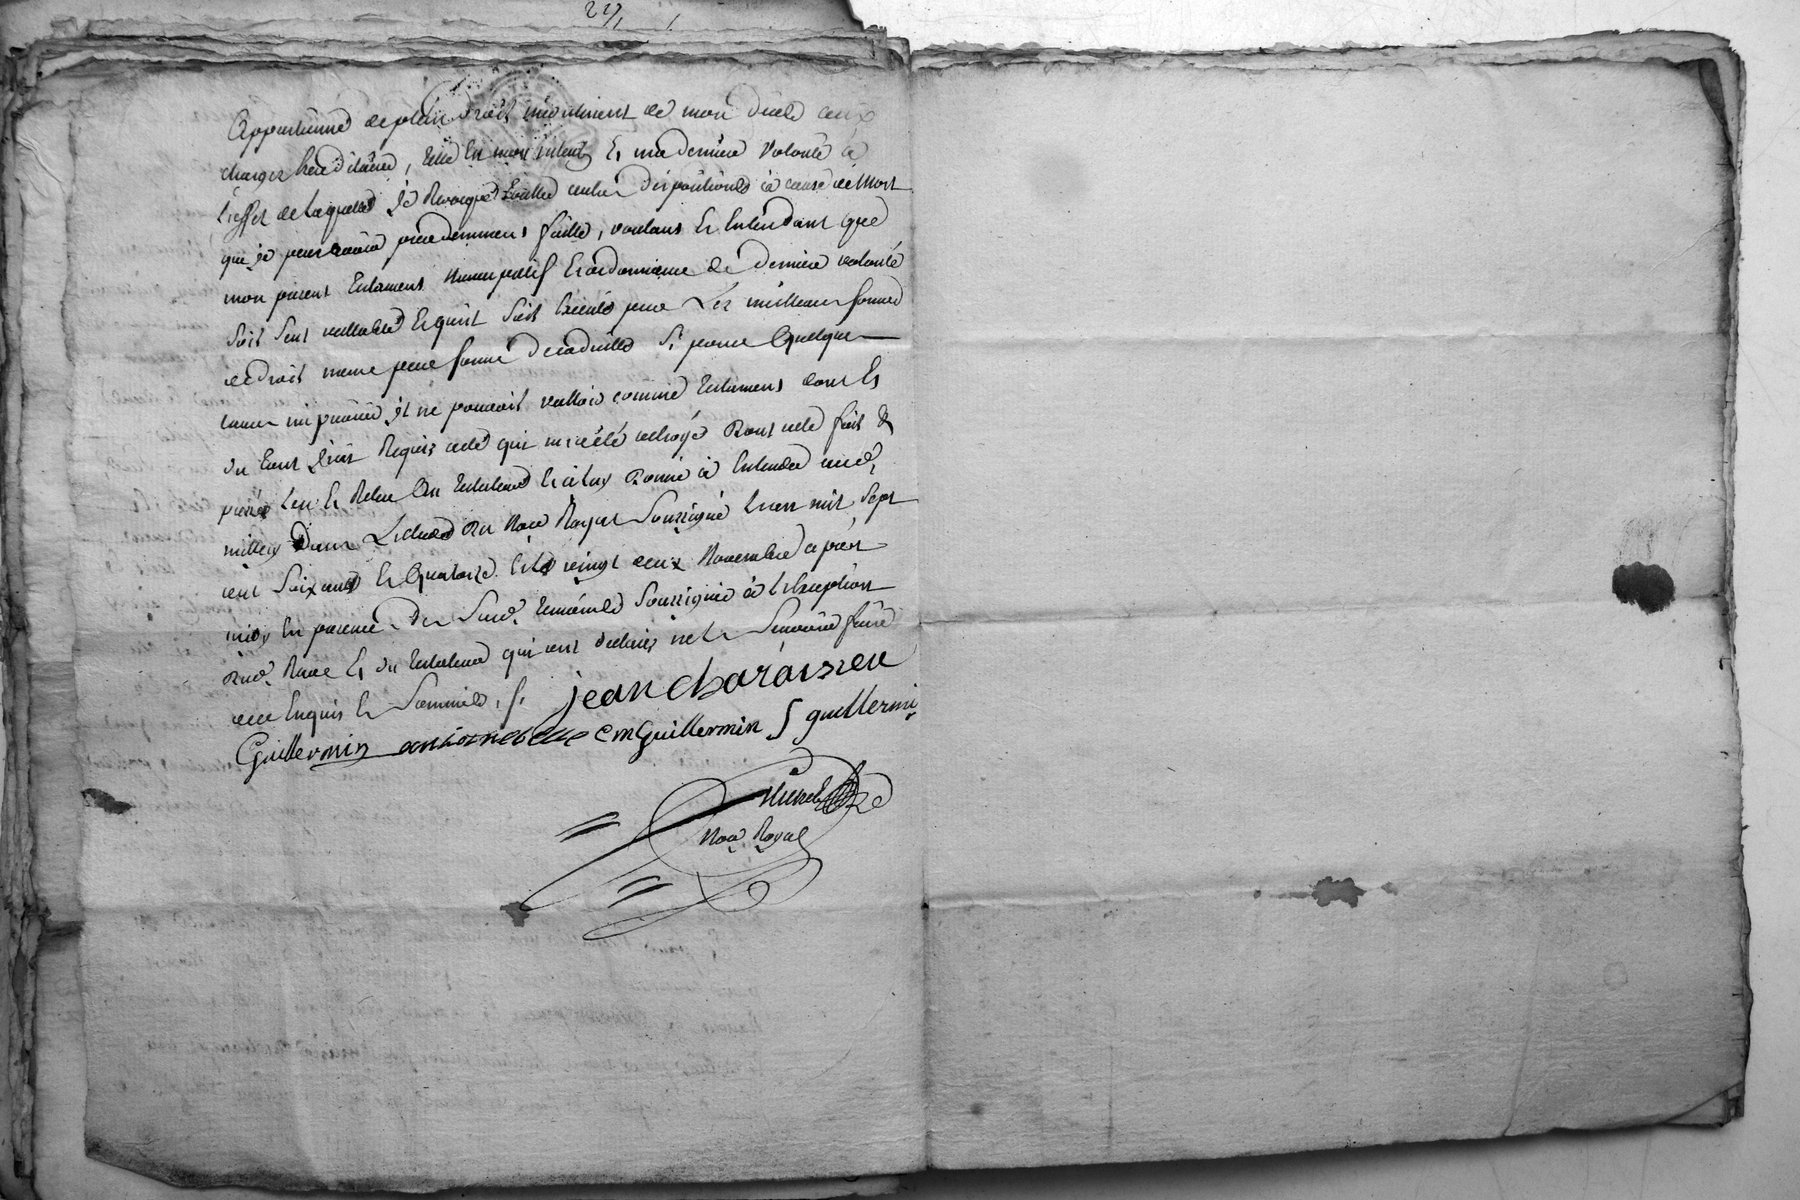 22
Appartienne de plein droit incontinent de mon deceds aux
charges hereditaires, telle est mon intention Et ma derniere Volonté à
l'effet de laquelle je Revoque toutes autres dispositions à cause de Mort
que je peux avoir precedemment faittes, voulant Et Entendant que
mon present testament nuncupatif Et ordonnance de derniere volonté
soit seul vallable Et qu'il soit Executé pour Les meilleures formes
de droit meme pour forme de codicilles si pour Quelque
cause imprevue il ne pouvoit valloir comme testament dont Et
du tout j'ai Requis acte qui m'a été octroyé Dont acte fait &
passé leu Et Relu Au testateur Et à luy Donné à Entendre
dans L'etude du Nore Royal soussigné L'an mil sept
cent soixante Et Quatorze Et le vingt deux Novembre apres
midy En presence des temoins soussignés à L'exception
Et du testateur qui ont declaré ne le sçavoir faire
de ce Enquis Et sommés. /.
jean charassieu
Guillermin antoine belle cm Guillermin J guillermin
Nore Royal